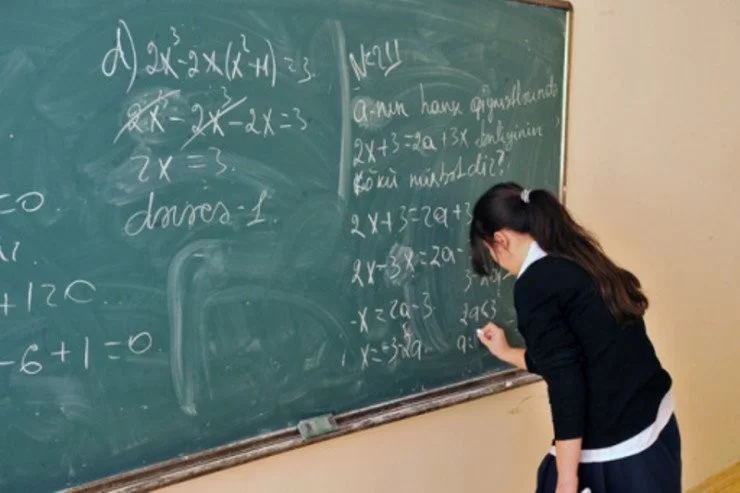 =0
+1=0
-6+1=0
d) 2x³-2x(x²+1)=3
2x³-2x³-2x=3
2x=3
dərəcə-1
№211
a-nın hansı qiymətlərində
2x+3=2a+3x tənliyinin
kökü müsbətdir?
2x+3=2a+3
2x-3x=2a-
-x=2a-3
2a<3
x=-3-2a
a